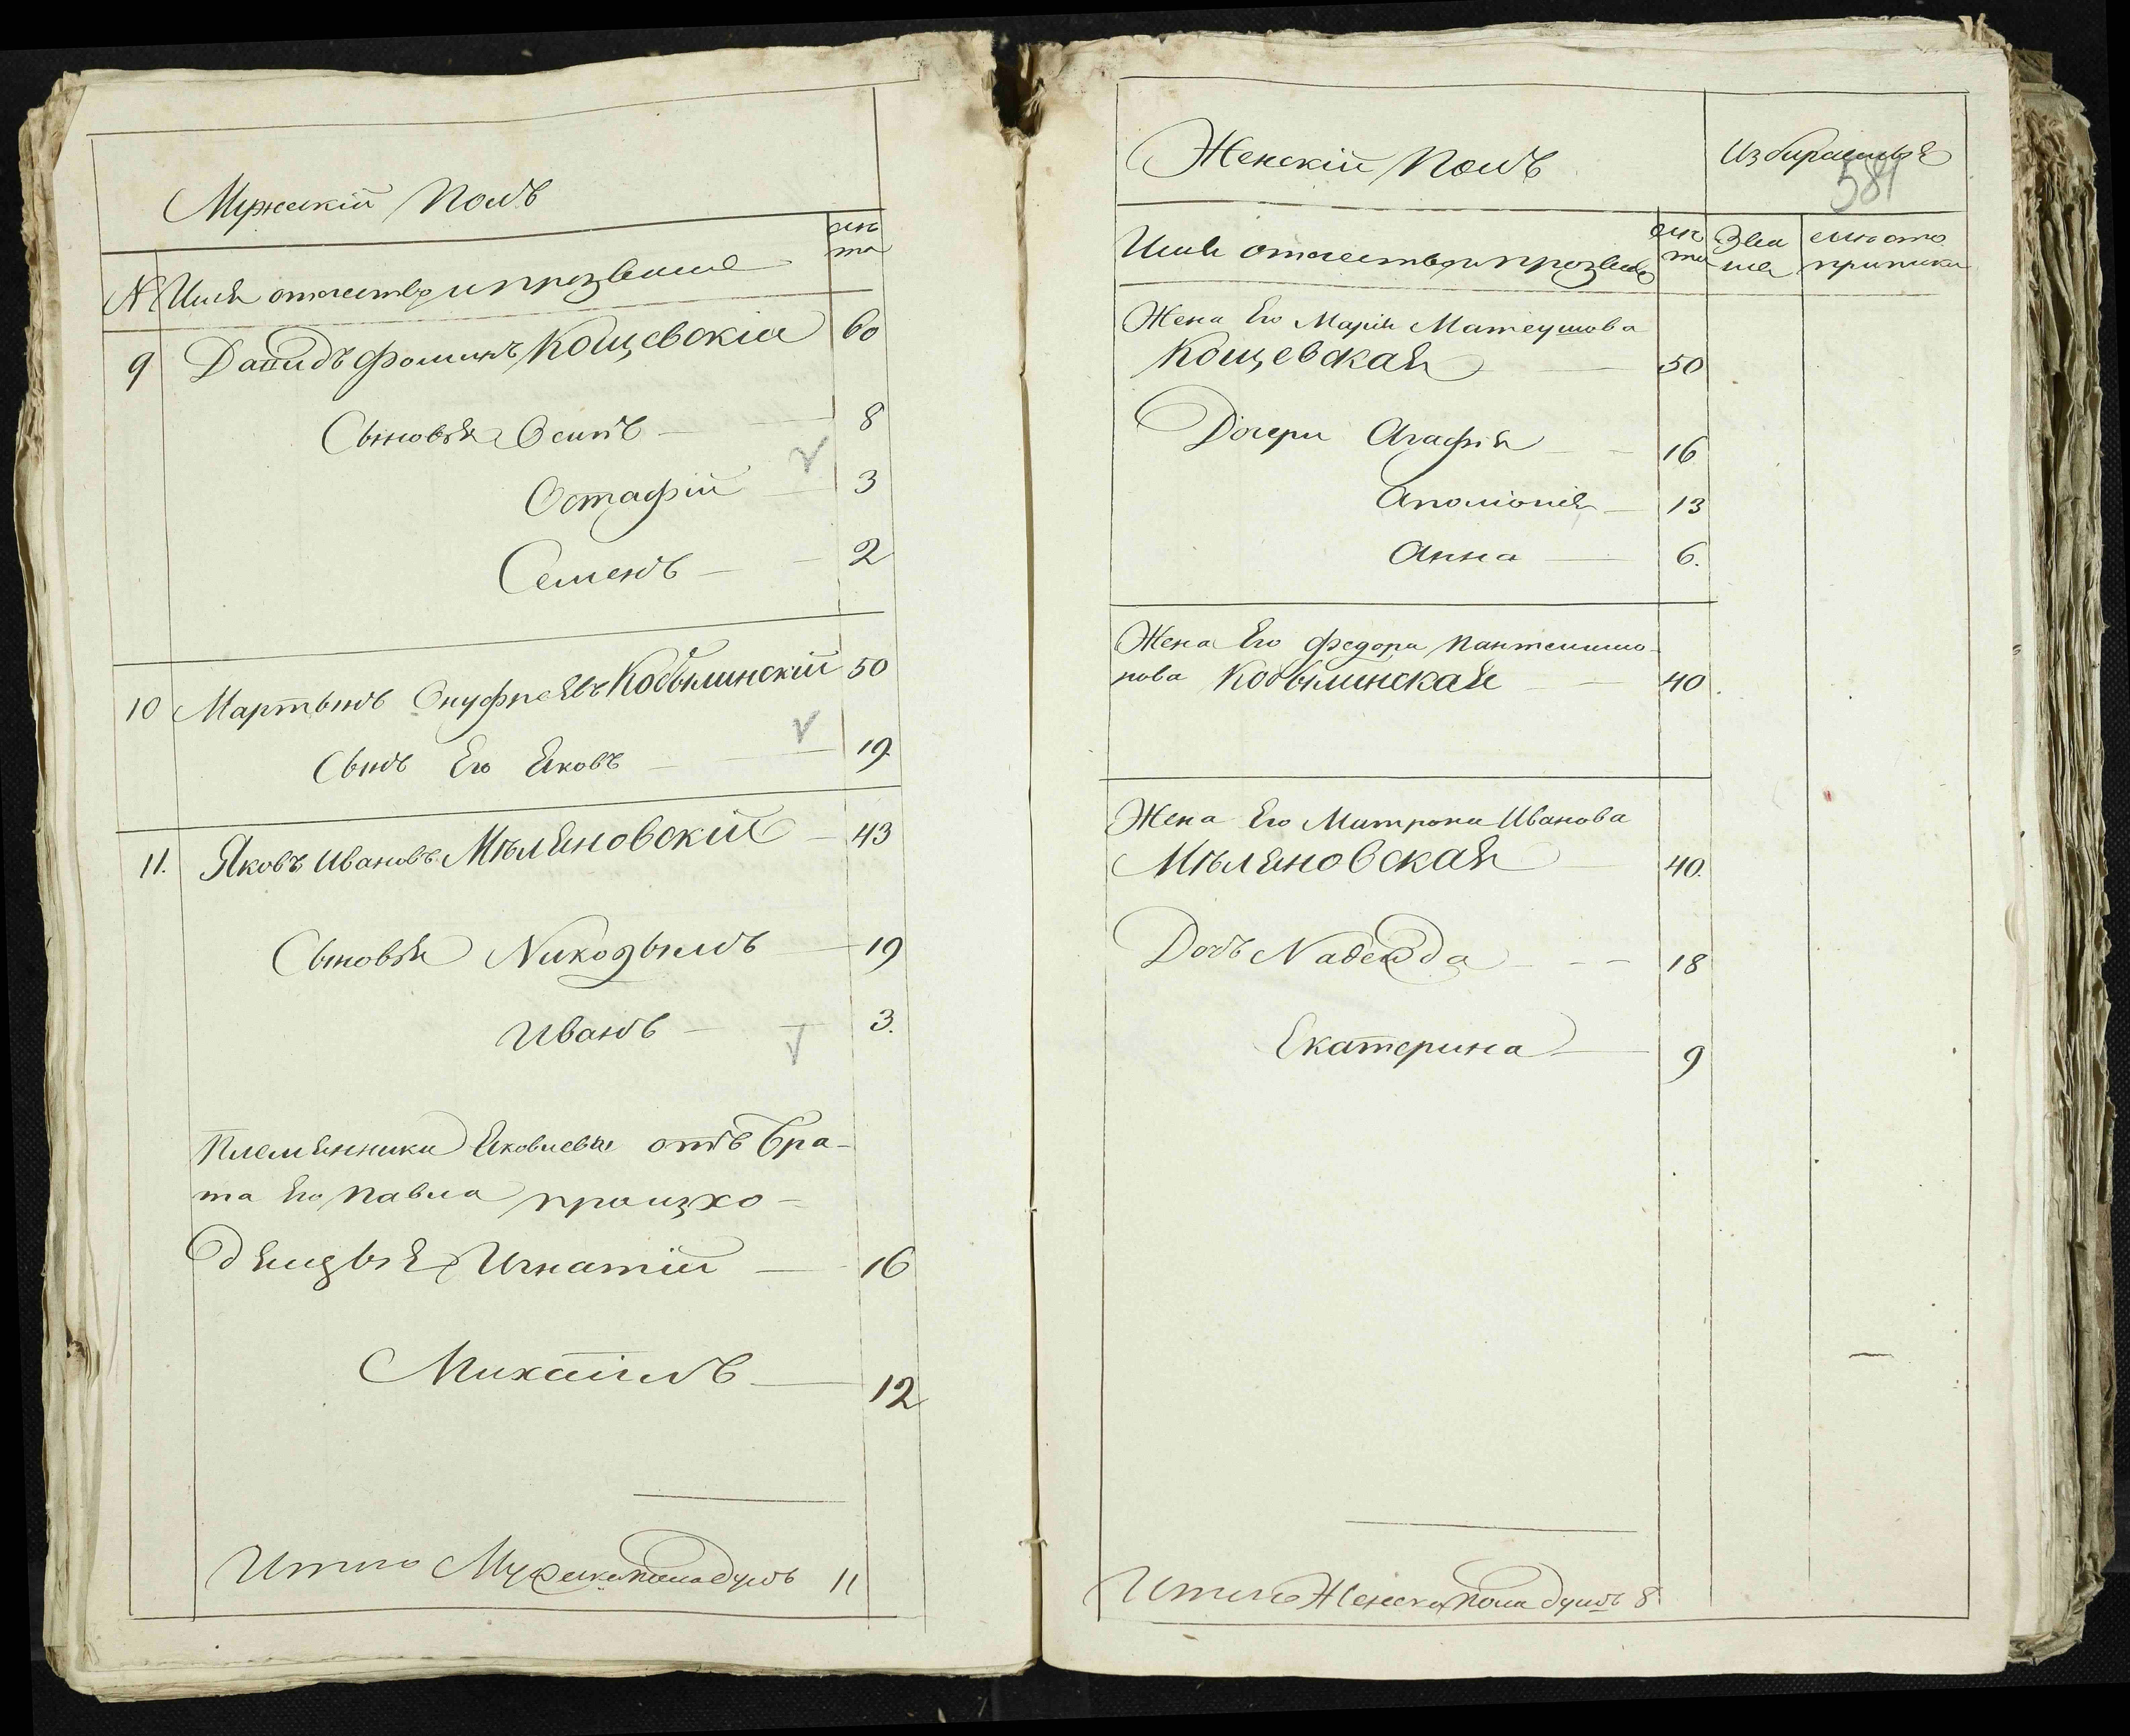 Мужескій Полъ
№ Имя отчество и прозвание
лѣ
та
9 Давидъ Фоминъ Кощевскій 60
Сыновья Осипъ 8
Остафій 3
Семенъ 2
10 Мартынъ Онуфріевъ Кобылинскій 50
Сынъ Его Яковъ 19
11. Яковъ Ивановъ Мѣляновскій 43
Сыновья Никодымъ 19
Иванъ 3.
Племянники Яковлевы отъ бра-
та Его Павла
Игнатій 16
Михаилъ 12
Итого Мужеска пола душъ 11
Женскій Полъ
581
Имя отчество и прозвание
лѣ
та
Зва
ние
Жена Его Марія Матеушова
Кощевская 50
Дочери Агафія 16
Аполонія 13
Анна 6.
Жена Его Федора Пантелимо-
нова Кобылинская 40
Жена Его Матрона Иванова
Мѣляновская 40.
Дочь Надежда 18
Екатерина 9
Итого Женска пола душъ 8